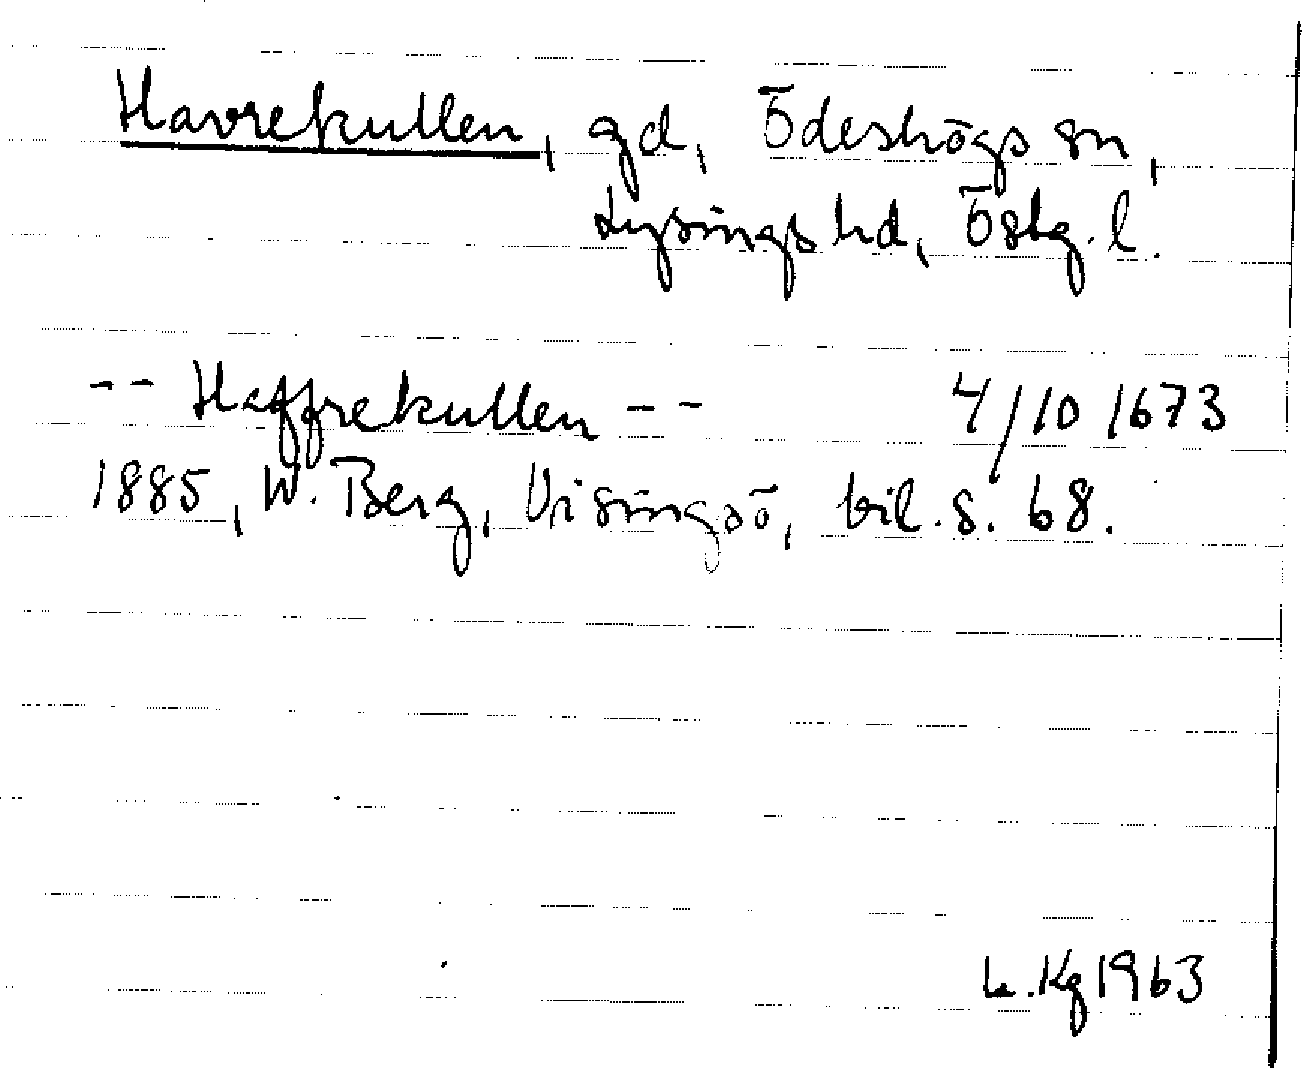 Havrekullen, gd, Ödeshögs sn,
Lysings hd, Östg. l.
-- Haffrekullen -- 4/10 1673
1885, W. Berg, Visingsö, bil. s. 68.
L. Kg 1963